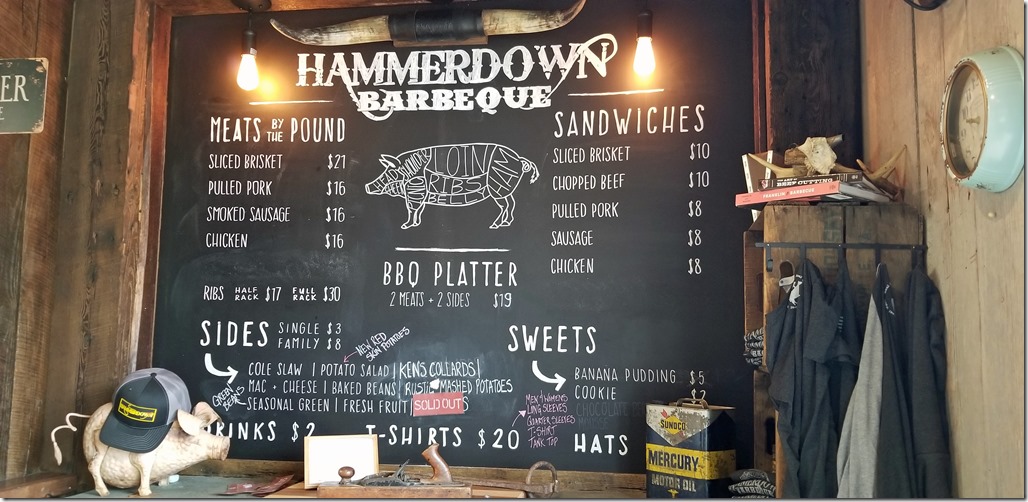 ER
HAMMERDOWN
BARBEQUE
MEATS BY THE POUND
SLICED BRISKET $21
PULLED PORK $16
SMOKED SAUSAGE $16
CHICKEN $16
RIBS HALF RACK $17 FULL RACK $30
LOIN
RIBS
BELLY
BBQ PLATTER
2 MEATS + 2 SIDES $19
SANDWICHES
SLICED BRISKET $10
CHOPPED BEEF $10
PULLED PORK $8
SAUSAGE $8
CHICKEN $8
SIDES SINGLE $3
FAMILY $8
NEW RED
SKIN POTATOES
COLE SLAW | POTATO SALAD | KEN'S COLLARDS |
MAC + CHEESE | BAKED BEANS | RUSTIC MASHED POTATOES
GREEN
BEANS
SEASONAL GREEN | FRESH FRUIT | SOLD OUT S
SWEETS
BANANA PUDDING $5
COOKIE
CHOCOLATE
MEN + WOMENS
LONG SLEEVES
QUARTER SLEEVES
T-SHIRT
TANK TOP
DRINKS $2
T-SHIRTS $20
HATS
HAMMERDOWN
SUNOCO
MERCURY
MOTOR OIL
BEEF CUTTING
FRANKLIN BARBECUE